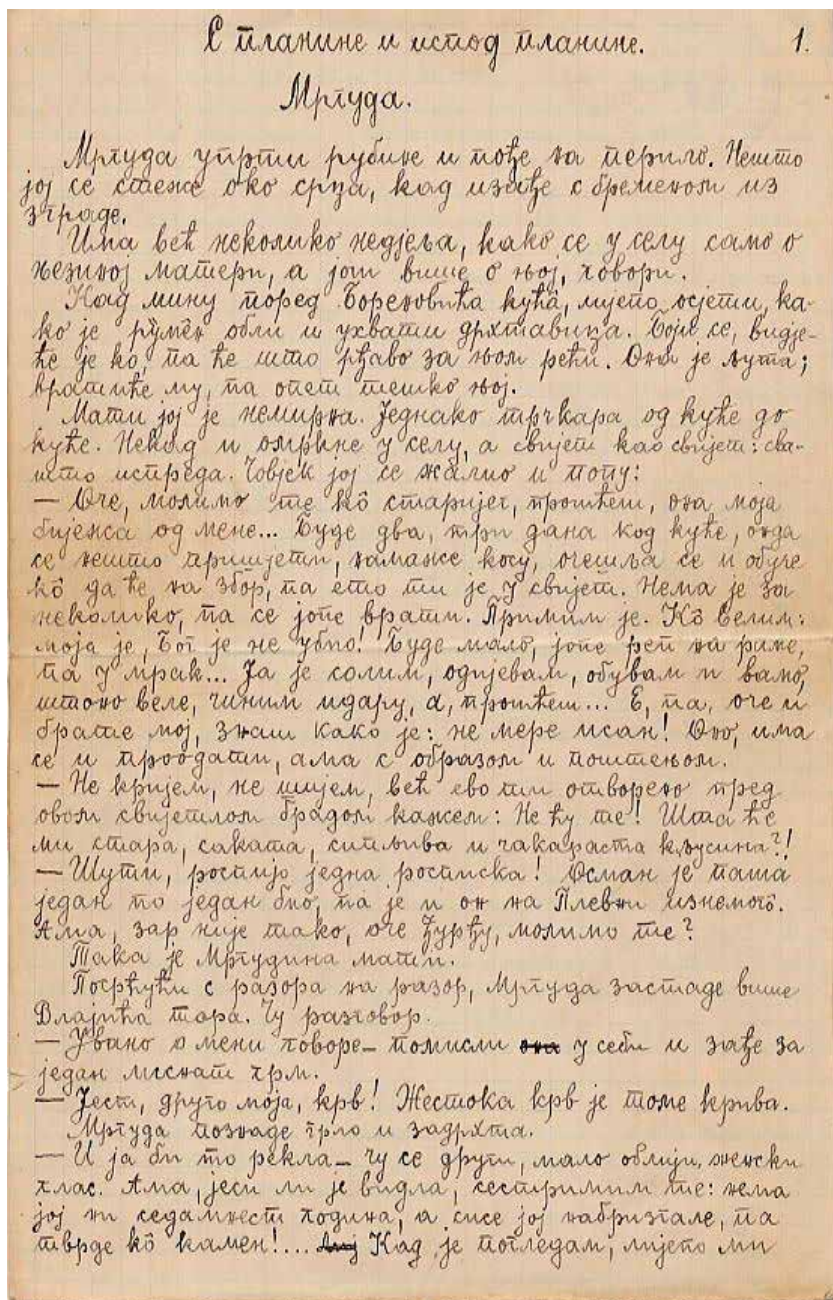 С планине и испод планине. 1.
Мргуда.
Мргуда упрти рубине и пође на перило. Нешто
јој се стеже око срца, кад изађе с бременом из
зграде.
Има већ неколико недјеља, како се у селу само о
њезиној матери, а још више о њој, говори.
Кад мину поред Бореновића кућâ, лијепо осјети, ка-
ко је румен обли и ухвати дрхтавица. Боји се, видје-
ће је ко, па ће што рђаво за њом рећи. Она је љута;
вратиће му, па опет тешко њој.
Мати јој је немирна. Једнако трчкара од куће до
куће. Некад и омркне у селу, а свијет као свијет: сва-
што испреда. Човјек јој се жалио и попу:
— Оче, молимо те кô старијег, прошћеш, она моја
бијенса од мене... Буде два, три дана код куће, онда
се нешто пришјети, намаже косу, очешља се и обуче
кô да ће на збор, па ето ти је у свијет. Нема је за
неколико, па се јопе врати. Примим је. Кô велим:
моја је, Бог је не убио! Буде мало, јопе реп на раме,
па у мрак... Ја је солим, одијевам, обувам и вамо,
штоно веле, чиним идару, а, прошћеш... Е, па, оче и
брате мој, знаш како је: не мере исан! Оно, има
се и проодати, ама с образом и поштењом.
— Не кријем, не шијем, већ ево ти отворено пред
овом свијетлом брадом кажем: Не ћу те! Шта ће
ми стара, саката, сипљива и чакараста кљусина?!
— Шути, роспијо једна росписка! Осман је паша
један по један био, па је и он на Плевни изнемогô.
Ама, зар није тако, оче Ђурђу, молимо те?
Така је Мргудина мати.
Посрћући с разора на разор, Мргуда застаде више
Влајића тора. Чу разговор.
— Јвано о мени говоре — помисли у себи и зађе за
један лиснат грм.
— Јест, друго моја, крв! Жестока крв је томе крива.
Мргуда познаде грло и задрхта.
— И ја би то рекла — чу се други, мало облији, женски
глас. Ама, јеси ли је видла, сестримим те: нема
јој ни седамнест година, а сисе јој набризгале, па
тврде кô камен!... Кад је погледам, лијепо ми